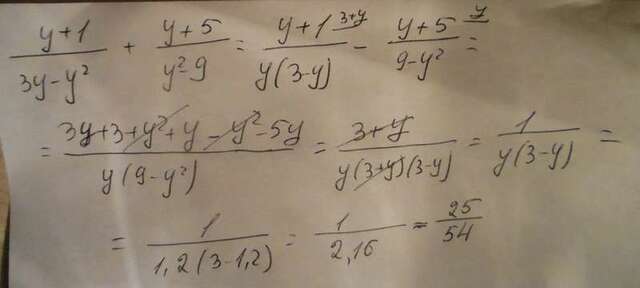 (y+1)/(3y-y²) + (y+5)/(y²-9) = (y+1)/(y(3-y)) ^3+y - (y+5)/(9-y²) ^y =
= (3y+3+y²+y-y²-5y)/(y(9-y²)) = (3+y)/(y(3+y)(3-y)) = 1/(y(3-y)) =
= 1/(1,2(3-1,2)) = 1/2,16 = 25/54